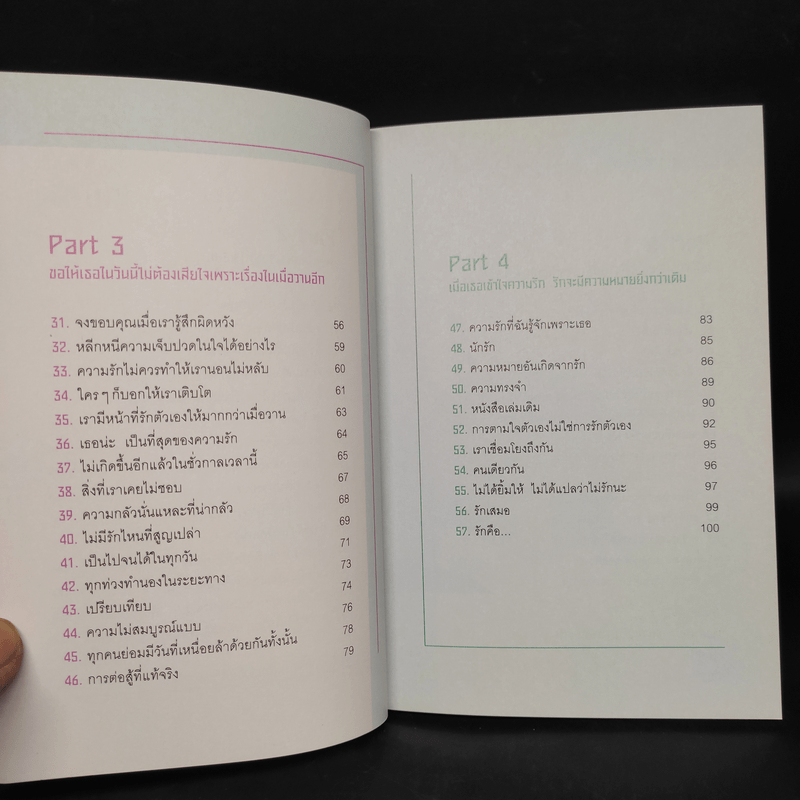 Part 3
ขอให้เธอในวันนี้ไม่ต้องเสียใจเพราะเรื่องในเมื่อวานอีก
31. จงขอบคุณเมื่อเรารู้สึกผิดหวัง 56
32. หลีกหนีความเจ็บปวดในใจได้อย่างไร 59
33. ความรักไม่ควรทำให้เรานอนไม่หลับ 60
34. ใครๆ ก็บอกให้เราเติบโต 61
35. เรามีหน้าที่รักตัวเองให้มากกว่าเมื่อวาน 63
36. เธอน่ะ เป็นที่สุดของความรัก 64
37. ไม่เกิดขึ้นอีกแล้วในชั่วกาลเวลานี้ 65
38. สิ่งที่เราเคยไม่ชอบ 67
39. ความกลัวนั่นแหละที่น่ากลัว 68
40. ไม่มีรักไหนที่สูญเปล่า 69
41. เป็นไปจนได้ในทุกวัน 71
42. ทุกท่วงทำนองในระยะทาง 73
43. เปรียบเทียบ 74
44. ความไม่สมบูรณ์แบบ 76
45. ทุกคนย่อมมีวันที่เหนื่อยล้าด้วยกันทั้งนั้น 78
46. การต่อสู้ที่แท้จริง 79
Part 4
เมื่อเธอเข้าใจความรัก รักจะมีความหมายยิ่งกว่าเดิม
47. ความรักที่ฉันรู้จักเพราะเธอ 83
48. นักรัก 85
49. ความหมายอันเกิดจากรัก 86
50. ความทรงจำ 89
51. หนังสือเล่มเดิม 90
52. การตามใจตัวเองไม่ใช่การรักตัวเอง 92
53. เราเชื่อมโยงถึงกัน 95
54. คนเดียวกัน 96
55. ไม่ได้ยิ้มให้ ไม่ได้แปลว่าไม่รักนะ 97
56. รักเสมอ 99
57. รักคือ... 100